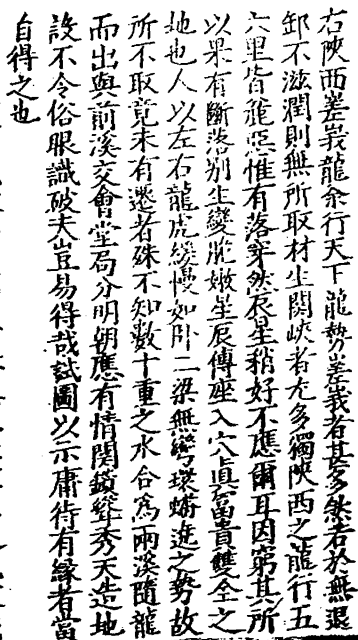 右陝西蓋峩龍余行天下龍勢蓋峩者甚多然若於無退
卸不滋潤則無所取材坐関峽者尤多獨陝西之龍行五
六里皆龍惡惟有落穿然辰星稍好不應爾耳因窮其所
以果有斷落别生變龍嫩星辰傳座入穴真富貴雙全之
地也人以左右龍虎緩慢如卧二梁無彎環蟠迯之勢故
所不取竟未有遷者殊不知數十重之水合為兩溪隨龍
而出與前溪交會堂局分明朝應有情関鎖聳秀天造地
設不令俗眼識破夫豈易得哉試圖以示庸待有緣者當
自得之也